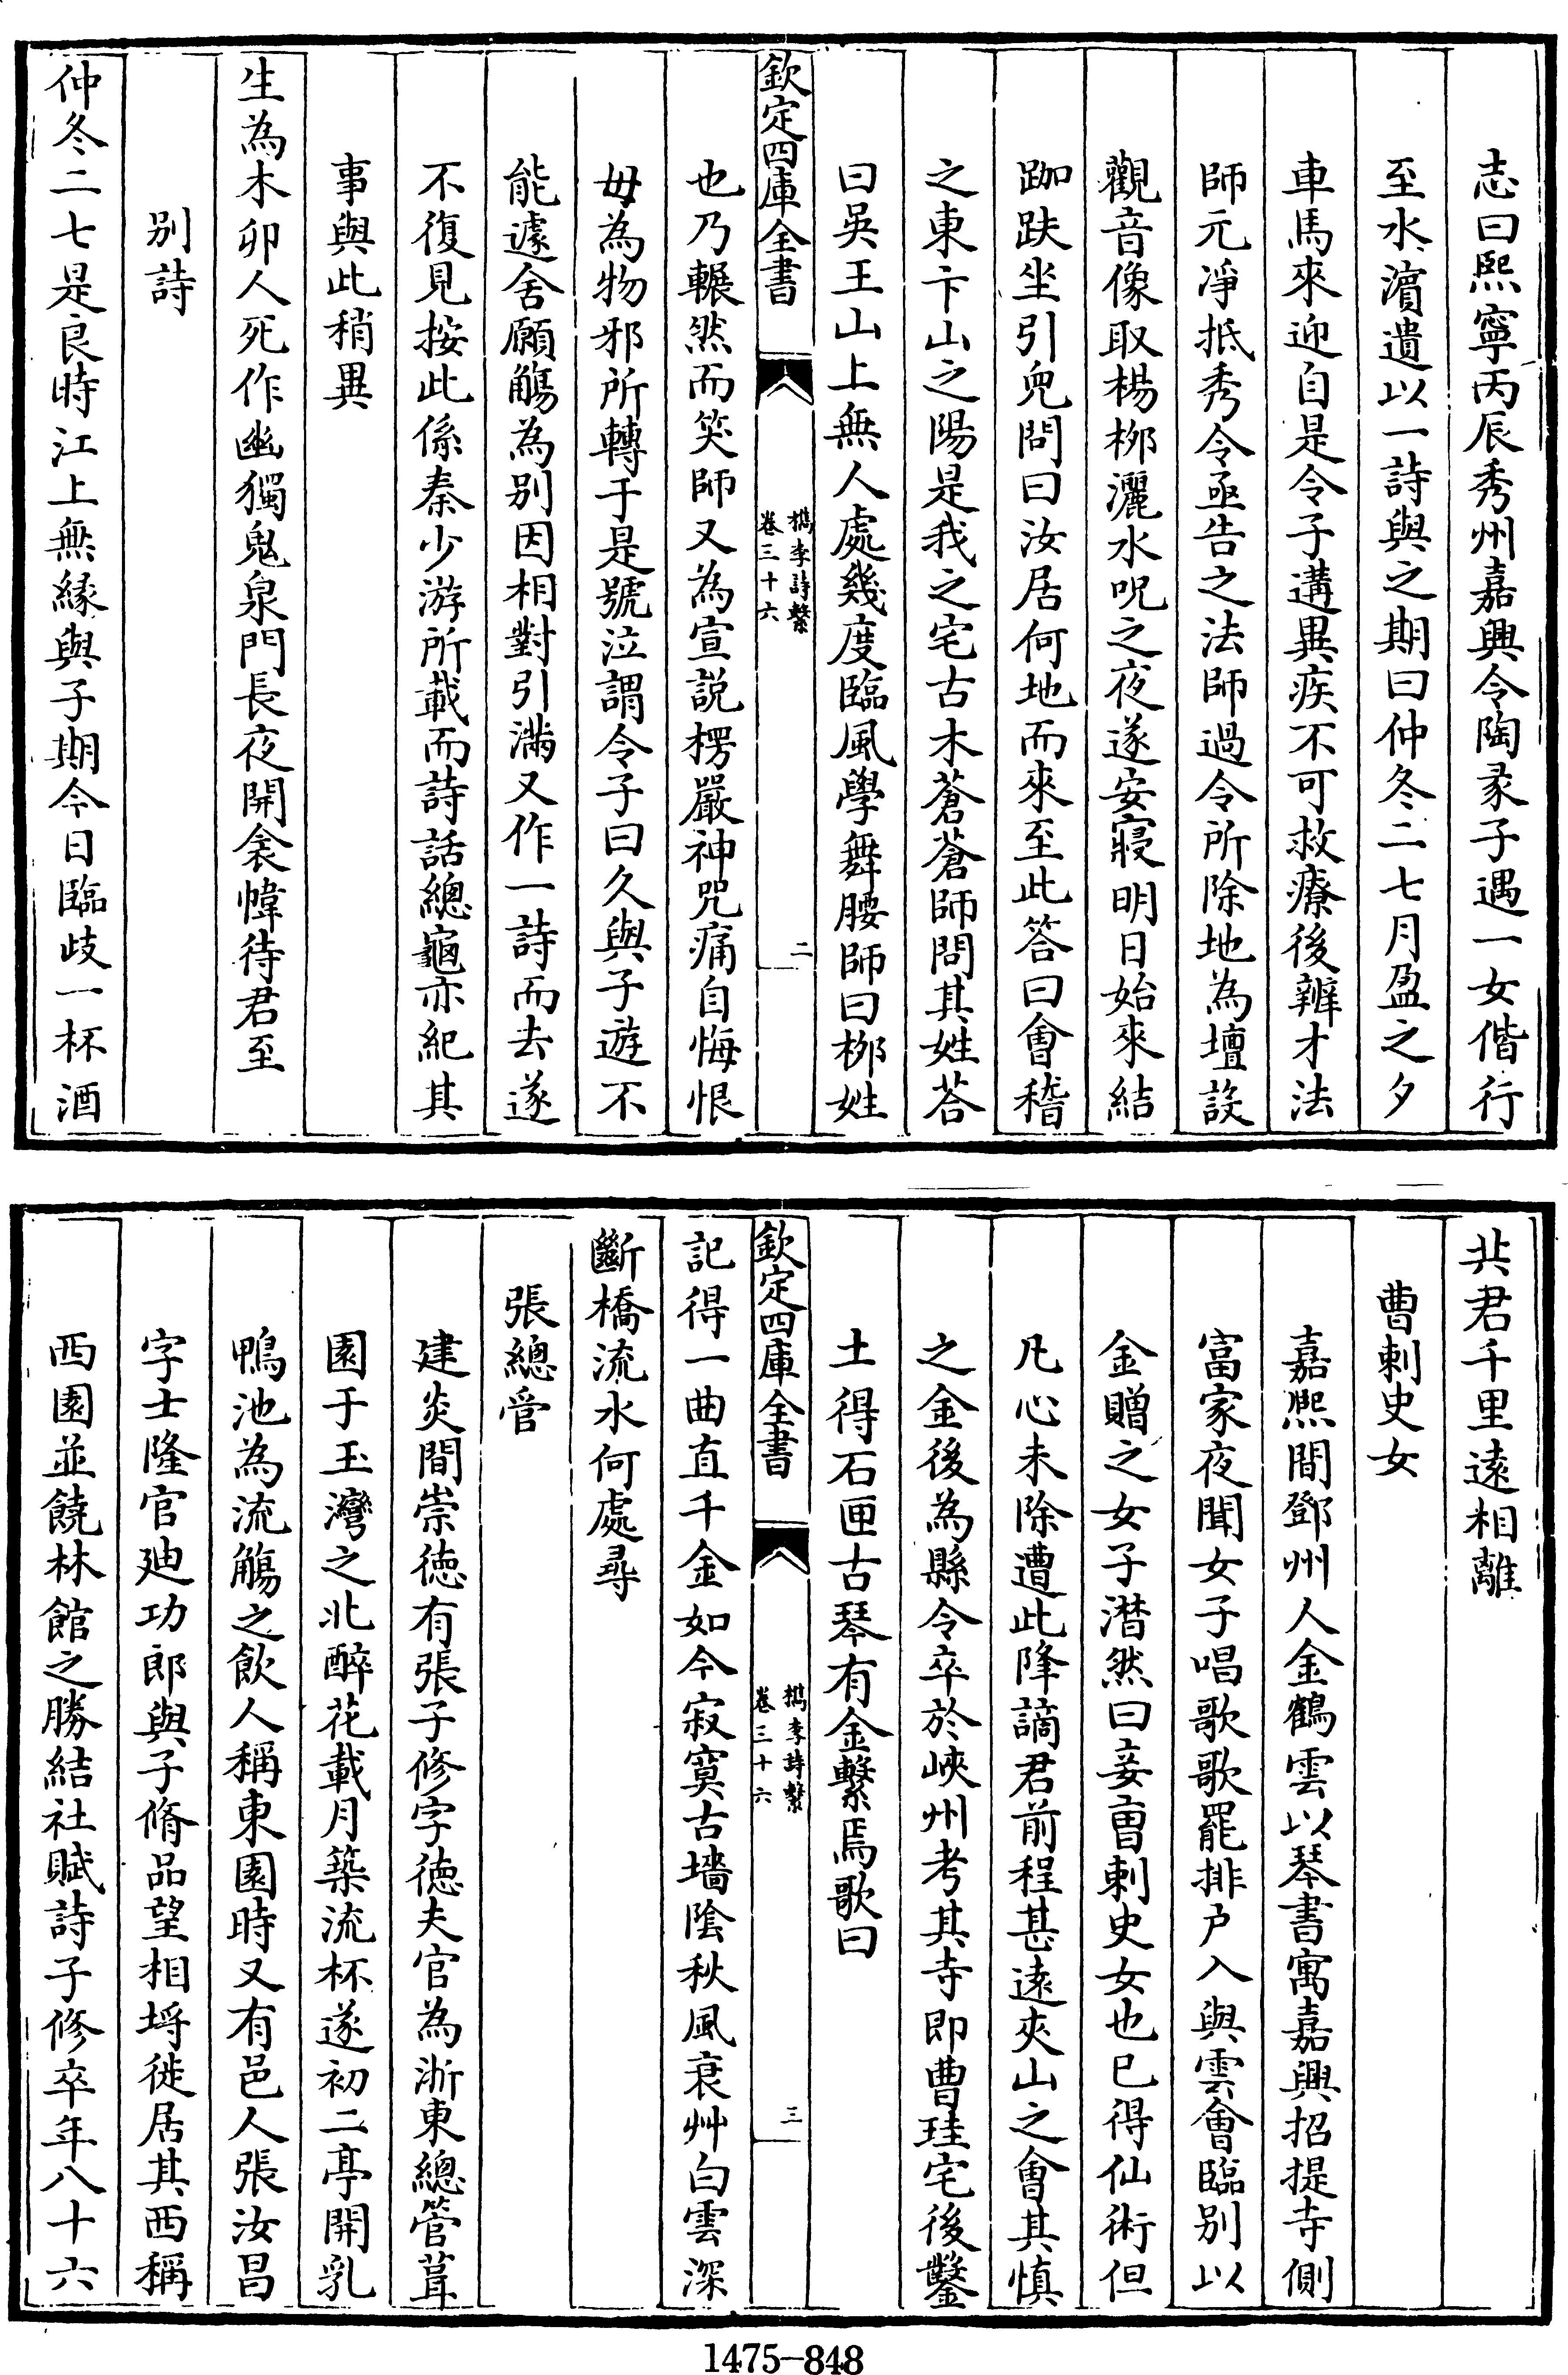 志曰熙寧丙辰秀州嘉興令陶彖子遇一女偕行
至水濱遺以一詩與之期曰仲冬二七月盈之夕
車馬來迎自是令子遘異疾不可救療後辨才法
師元凈抵秀令亟告之法師過令所除地為壇設
觀音像取楊栁灑水呪之夜遂安寢明日始來結
跏趺坐引兒問曰汝居何地而來至此答曰會稽
之東卞山之陽是我之宅古木蒼蒼師問其姓荅
曰吳王山上無人處幾度臨風學舞腰師曰栁姓
欽定四庫全書
檇李詩繫
卷三十六
二
也乃輾然而笑師又為宣説楞嚴神咒痛自悔恨
毋為物邪所轉于是號泣謂令子曰久與子遊不
能遽舍願觴為别因相對引滿又作一詩而去遂
不復見按此係秦少游所載而詩話總龜亦紀其
事與此稍異
生為木卯人死作幽獨鬼泉門長夜開衾幃待君至
别詩
仲冬二七是良時江上無緣與子期今日臨歧一杯酒
共君千里遠相離
曹刺史女
嘉熙間鄧州人金鶴雲以琴書寓嘉興招提寺側
富家夜聞女子唱歌歌罷排户入與雲會臨别以
金贈之女子潸然曰妾曹刺史女也已得仙術但
凡心未除遭此降謫君前程甚遠夾山之會其慎
之金後為縣令卒於峽州考其寺即曹珪宅後鑿
土得石匣古琴有金繫焉歌曰
欽定四庫全書
檇李詩繫
卷三十六
三
記得一曲直千金如今寂寞古墻陰秋風衰艸白雲深
斷橋流水何處尋
張總管
建炎間崇德有張子修字德夫官為浙東總管葺
園于玉灣之北醉花載月築流杯遂初二亭開乳
鴨池為流觴之飲人稱東園時又有邑人張汝昌
字士隆官廸功郎與子脩品望相埒徙居其西稱
西園並饒林館之勝結社賦詩子修卒年八十六
1475-848